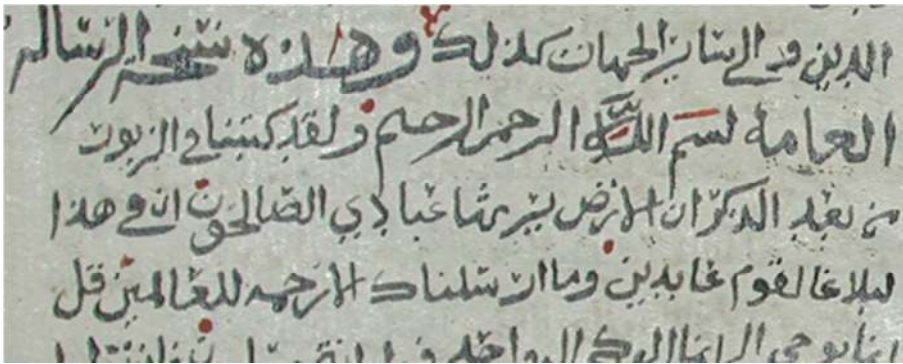 الدين والى سائر الجهات كذلك وهذه نسخة الرسالة
العامة بسم الله الرحمن الرحيم ولقد كتبنا في الزبور
من بعد الذكر ان الارض يرثها عبادي الصالحون ان في هذا
لبلاغا لقوم عابدين وما ارسلناك الا رحمه للعالمين قل
انما يوحى الي انما